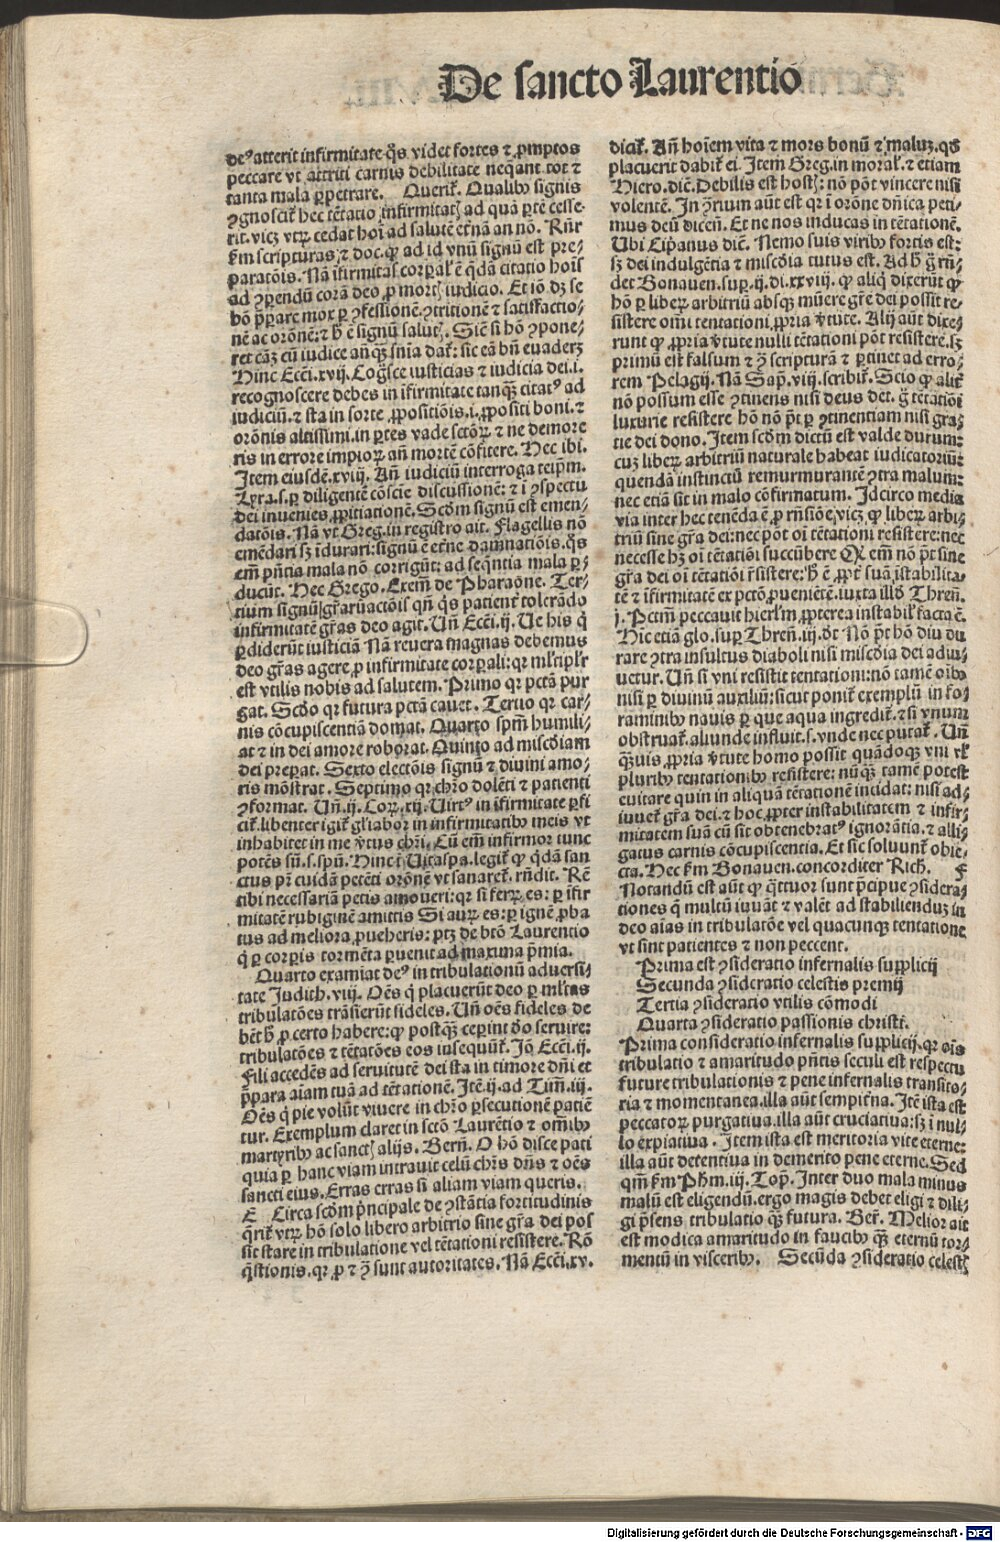 De sancto Laurentio
deꝰ atterit infirmitate q̄s videt fortes ⁊ ꝓmptos
peccare vt attriti carnis debilitate neq̄ant tot ⁊
tanta mala ꝑpetrare. Querit᷑. Qualibꝯ signis
ꝯgnoscit᷑ hec tētatio infirmitatꝭ ad quā ꝑtē cesse-
rit. vicꝫ vtꝝ cedat hoī ad salutē et̄nā an nō. Rn̄r
ẜm scripturas ⁊ doc. ꝙ ad id vnū signū est pre-
paratōis. Nā īfirmitas corꝑal' ē q̄dā citatio hoīs
ad ꝯparendū corā deo ꝓ mortꝭ iudicio. Et iō dꝫ se
hō p̄parare mox ꝑ ꝯfessionē ꝯtritionē ⁊ satisfactio-
nē ac orōnē: ⁊ h̄ ē signū salutꝭ. Sic̄ si hō ꝯpone-
ret cāꝫ cū iudice anq̄ꝫ snīa dat᷑: sic eā bn̄ euaderꝫ
Hinc Ecc̄i. xvij. Cogn̄sce iusticias ⁊ iudicia dei .i.
recognoscere debes in īfirmitate tanq̄ꝫ citatꝰ ad
iudiciū. ⁊ sta in sorte ꝓpositiōis .i. ꝓpositi boni. ⁊
orōnis altissimi. in ꝑtes vade sctōꝝ ⁊ ne demore
ris in errore impioꝝ an̄ mortē cōfitere. Hec ibi.
Item eiusdē. xviij. An̄ iudiciū interroga teip̄m.
Lyra .s. ꝑ diligentē cōscie discussionē: ⁊ ī ꝯspectu
dei inuenies ꝓpitiationē. Scd̄m signū est emen-
datōis. Nā vt Greg. in registro ait. Flagellis nō
emēdari sꝫ īdurari: signū ē et̄ne damnatiōis. q̄s
em̄ pn̄tia mala nō corrigūt: ad seq̄ntia mala ꝑ-
ducūt. Hec Grego. Exem̄ de Pharaōne. Ter-
tium signū gr̄aꝝ actōis qn̄ q̄s patient᷑ tolerādo
infirmitatē gr̄as deo agit. Vn̄ Ecc̄i. ij. Ve his q̄
ꝑdiderūt iusticiā Nā reuera magnas debemus
deo gr̄as agere ꝓ infirmitate corꝑali: qr ml'tipl'r
est vtilis nobis ad salutem. Primo qr pctā pur
gat. Scd̄o qr futura pctā cauet. Tertio qr car-
nis cōcupiscentiā domat. Quarto spm̄ humili-
at ⁊ in dei amore roborat. Quinto ad miscd̄iam
dei preparat. Sexto electōis signū ⁊ diuini amo-
ris mōstrat. Septimo qr chrō dolēti ⁊ patienti
ꝯformat. Vn̄ .ij. Corꝝ. xij. Virtꝰ in īfirmitate ꝑfi
cit᷑. libenter igit᷑ gl'iabor in infirmitatibꝯ meis vt
inhabitet in me v̄tus chrī. Cū em̄ infirmor tunc
potēs sū .s. spū. Hinc ī Vitaspa. legit᷑ ꝙ q̄dā san
ctus pr̄ cuidā petēti orōnē vt sanaret᷑. rn̄dit. Rē
tibi necessariā petis amoueri: qr si ferꝝ es: ꝑ īfir
mitatē rubiginē amittis Si auꝝ es: ꝑ ignē ꝓba
tus ad meliora ꝓueheris: ptꝫ de btō Laurentio
q̄ ꝑ corꝑis tormēta ꝑuenit ad maxima p̄mia.
Quarto examiat deꝰ in tribulationū aduersi-
tate Judith. viij. Oēs q̄ placuerūt deo ꝑ ml'tas
tribulatōes trāsierūt fideles. Vn̄ oēs fideles de
bēt h̄ ꝓ certo habere: ꝙ postq̄ꝫ ceperint d̄o seruire:
tribulatōes ⁊ tētatōes eos insequūt᷑. Jō Ecc̄i. ij.
Fili accedēs ad seruitutē dei sta in timore dn̄i et
p̄para aīam tuā ad tētationē. Jtē .ij. ad Tim̄. iij.
Oēs q̄ pie volūt viuere in chrō ꝑsecutionē patiē
tur. Exemplum claret in sctō Laurētio ⁊ om̄ibꝯ
martyribꝯ ac sanctꝭ alijs. Bern̄. O hō disce pati
quia ꝑ hanc viam intrauit celū chrs dn̄s ⁊ oēs
sancti eius. Erras erras si aliam viam queris.
E Circa scd̄m p̄ncipale de ꝯstātia fortitudinis
q̄rit᷑ vtꝝ hō solo libero arbitrio sine gr̄a dei pos
sit stare in tribulatione vel tētationi resistere. Rō
q̄stionis. qr ꝓ ⁊ ꝯ̄ sunt autoritates. Nā Ecc̄i. xv.
dicit᷑. An̄ hoīem vita ⁊ mors bonū ⁊ malū. qd̄
placuerit dabit᷑ ei. Jtem Greg. in moral'. ⁊ etiam
Hiero. dic̄. Debilis est hostꝭ: nō pōt vincere nisi
volentē. Jn ꝯ̄rium aūt est qr ī orōne dn̄ica peti-
mus deū dicen̄. Et ne nos inducas in tētationē.
Ubi Cip̄anus dic̄. Nemo suis viribꝯ fortis est:
sꝫ dei indulgētia ⁊ miscd̄ia tutus est. Ad h̄ g̊ rn̄-
det Bonauen. suꝑ .ij. di. xxviij. ꝙ aliq̄ dixerūt ꝙ
hō ꝑ liberꝝ arbitriū absqꝫ mūere gr̄e dei possit re-
sistere om̄i tentationi ꝓpria v̄tute. Alij aūt dixe-
runt ꝙ ꝓpria v̄tute nulli tētationi pōt resistere. sꝫ
primū est falsum ⁊ ꝯ̄ scripturā ⁊ ꝑtinet ad erro-
rem Pelagij. Nā Sap̄. viij. scribit᷑. Scio ꝙ alit᷑
nō possum esse ꝯtinens nisi deus det. g̊ tētatiōi
luxurie resistere hō nō p̄t ꝑ ꝯtinentiam nisi gra-
tie dei dono. Jtem scd̄m dictū est valde durum:
cuꝫ liberꝝ arbitriū naturale habeat iudicatoriū:
quendā instinctū remurmurantē ꝯtra malum:
nec etiā sit in malo cōfirmatum. Jdcirco media
via inter hec tenēda ē ꝓ rn̄siōe. vicꝫ ꝙ liberꝝ arbi-
triū sine gr̄a dei: nec pōt oī tētationi resistere: nec
necesse hꝫ oī tētatiōi succūbere Qꝛ em̄ nō p̄t sine
gr̄a dei oī tētatiōi r̄sistere: h̄ ē ꝓpt᷑ suā īstabilita
tē ⁊ īfirmitatē ex pctō ꝓueniētē. iuxta illd̄ Thren̄.
j. Pctm̄ peccauit hierl'm ꝓpterea instabil' facta ē.
Hic etiā glo. suꝑ Thren̄. iij. dt̄ Nō p̄t hō diu du
rare ꝯtra insultus diaboli nisi miscd̄ia dei adiu-
uetur. Vn̄ si vni resistit tentationi: nō tamē oībꝯ
nisi ꝑ diuinū auxiliū: sicut ponit᷑ exemplū in fo-
raminibꝯ nauis ꝑ que aqua ingredit᷑. ⁊ si vnum
obstruat᷑. aliunde influit. s. vnde nec putat᷑. Vn̄
q̄ꝫuis ꝓpria v̄tute homo possit quādoqꝫ vni vl'
pluribꝯ tentationibꝯ resistere: nūq̄ꝫ tamē potest
euitare quin in aliquā tētationē incidat: nisi ad-
iuuet᷑ gr̄a dei. ⁊ hoc ꝓpter instabilitatem ⁊ infir-
mitatem suā cū sit obtenebratꝰ ignorātia. ⁊ alli-
gatus carnis cōcupiscentia. Et sic soluunt᷑ obie-
cta. Hec ẜm Bonauen. concorditer Rich. F
Notandū est aūt ꝙ q̄ttuor sunt p̄cipue ꝯsidera-
tiones q̄ multū iuuāt ⁊ valēt ad stabiliendū in
deo aīas in tribulatōe vel quacunqꝫ tentatione
vt sint patientes ⁊ non peccent.
Prima est ꝯsideratio infernalis supplicij
Secunda ꝯsideratio celestis premij
Tertia ꝯsideratio vtilis cōmodi
Quarta ꝯsideratio passionis christi.
Prima consideratio infernalis supplicij. qr oīs
tribulatio ⁊ amaritudo pn̄tis seculi est respectu
future tribulationis ⁊ pene infernalis transito-
ria ⁊ momentanea. illa aūt sempit̄na. Jtē ista est
peccatoꝝ purgatiua. illa aūt cruciatiua: sꝫ ī nul-
lo expiatiua. Jtem ista est meritoria vite eterne:
illa aūt detentiua in demerito pene eterne. Sed
qm̄ ẜm Ph̄m. iij. Top̄. Jnter duo mala minus
malū est eligendū. ergo magis debet eligi ⁊ dili-
gi p̄sens tribulatio q̄ꝫ futura. Ber̄. Melior ait
est modica amaritudo in faucibꝯ q̄ꝫ eternū tor-
mentū in visceribꝯ. Secūda ꝯsideratio celestꝭ
Digitalisierung gefördert durch die Deutsche Forschungsgemeinschaft - DFG